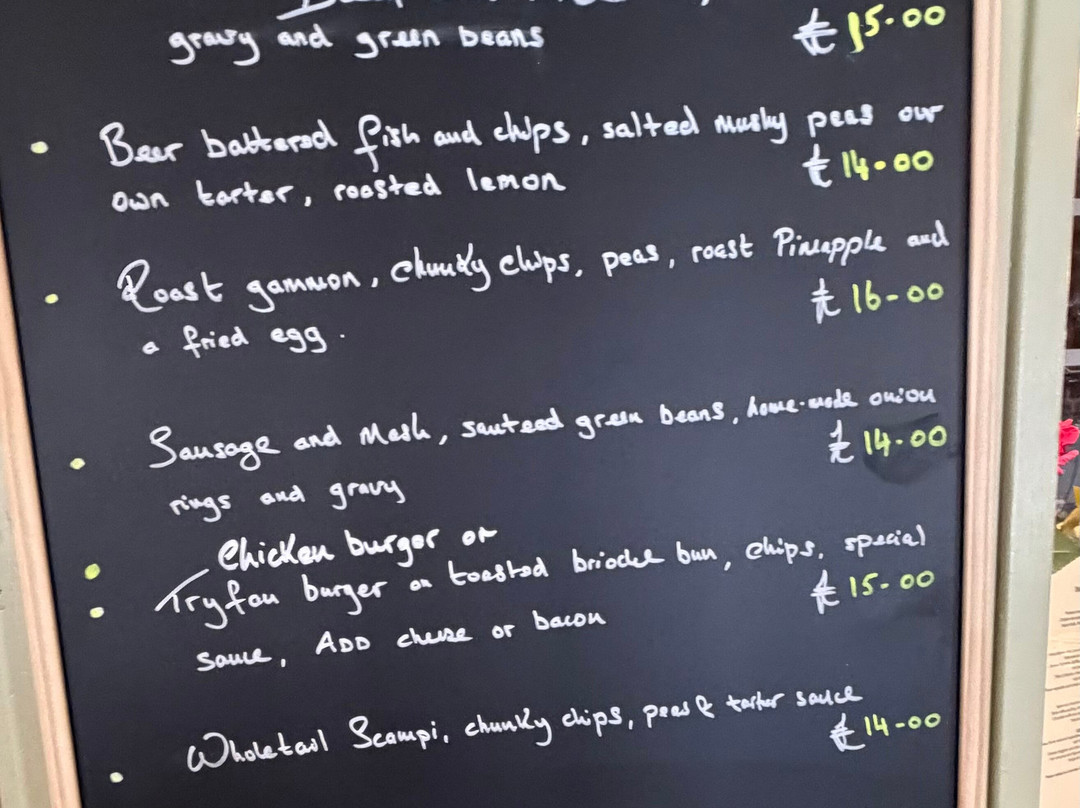 gravy and green beans £15.00
Beer battered fish and chips, salted mushy peas our
own tarter, roasted lemon £14.00
Roast gammon, chunky chips, peas, roast Pineapple and
a fried egg. £16-00
Sausage and Mash, sauteed green beans, home-made onion
rings and gravy £14-00
Chicken burger or
Tryfan burger on toasted brioche bun, chips, special
sauce, ADD cheese or bacon £15-00
Wholetail Scampi, chunky chips, peas & tarter sauce
£14-00